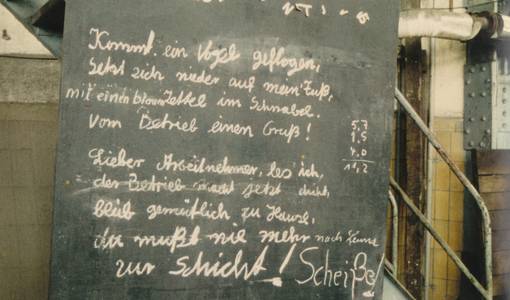 Kommt ein Vogel geflogen,
Setzt sich nieder auf mein Fuß,
mit einen blauen Zettel im Schnabel.
Vom Betrieb einen Gruß!
5,7
1,5
4,0
11,2
Lieber Arbeitnehmer, les ich,
der Betrieb macht jetzt dicht,
bleib gemütlich zu Hause,
du mußt nie mehr nach
zur Schicht! Scheiße!